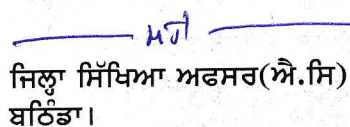 ਸਹੀ
ਜਿਲ੍ਹਾ ਸਿੱਖਿਆ ਅਫਸਰ(ਐ.ਸਿ)
ਬਠਿੰਡਾ।